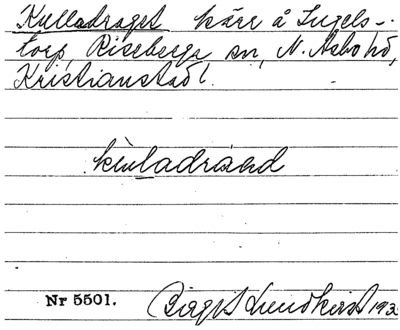 Kulladraget kärr å Ingels-
torp, Riseberga sn, N. Åsbo hd,
Kristianstad l.
Nr 5501. Birgit Lundkvist 193